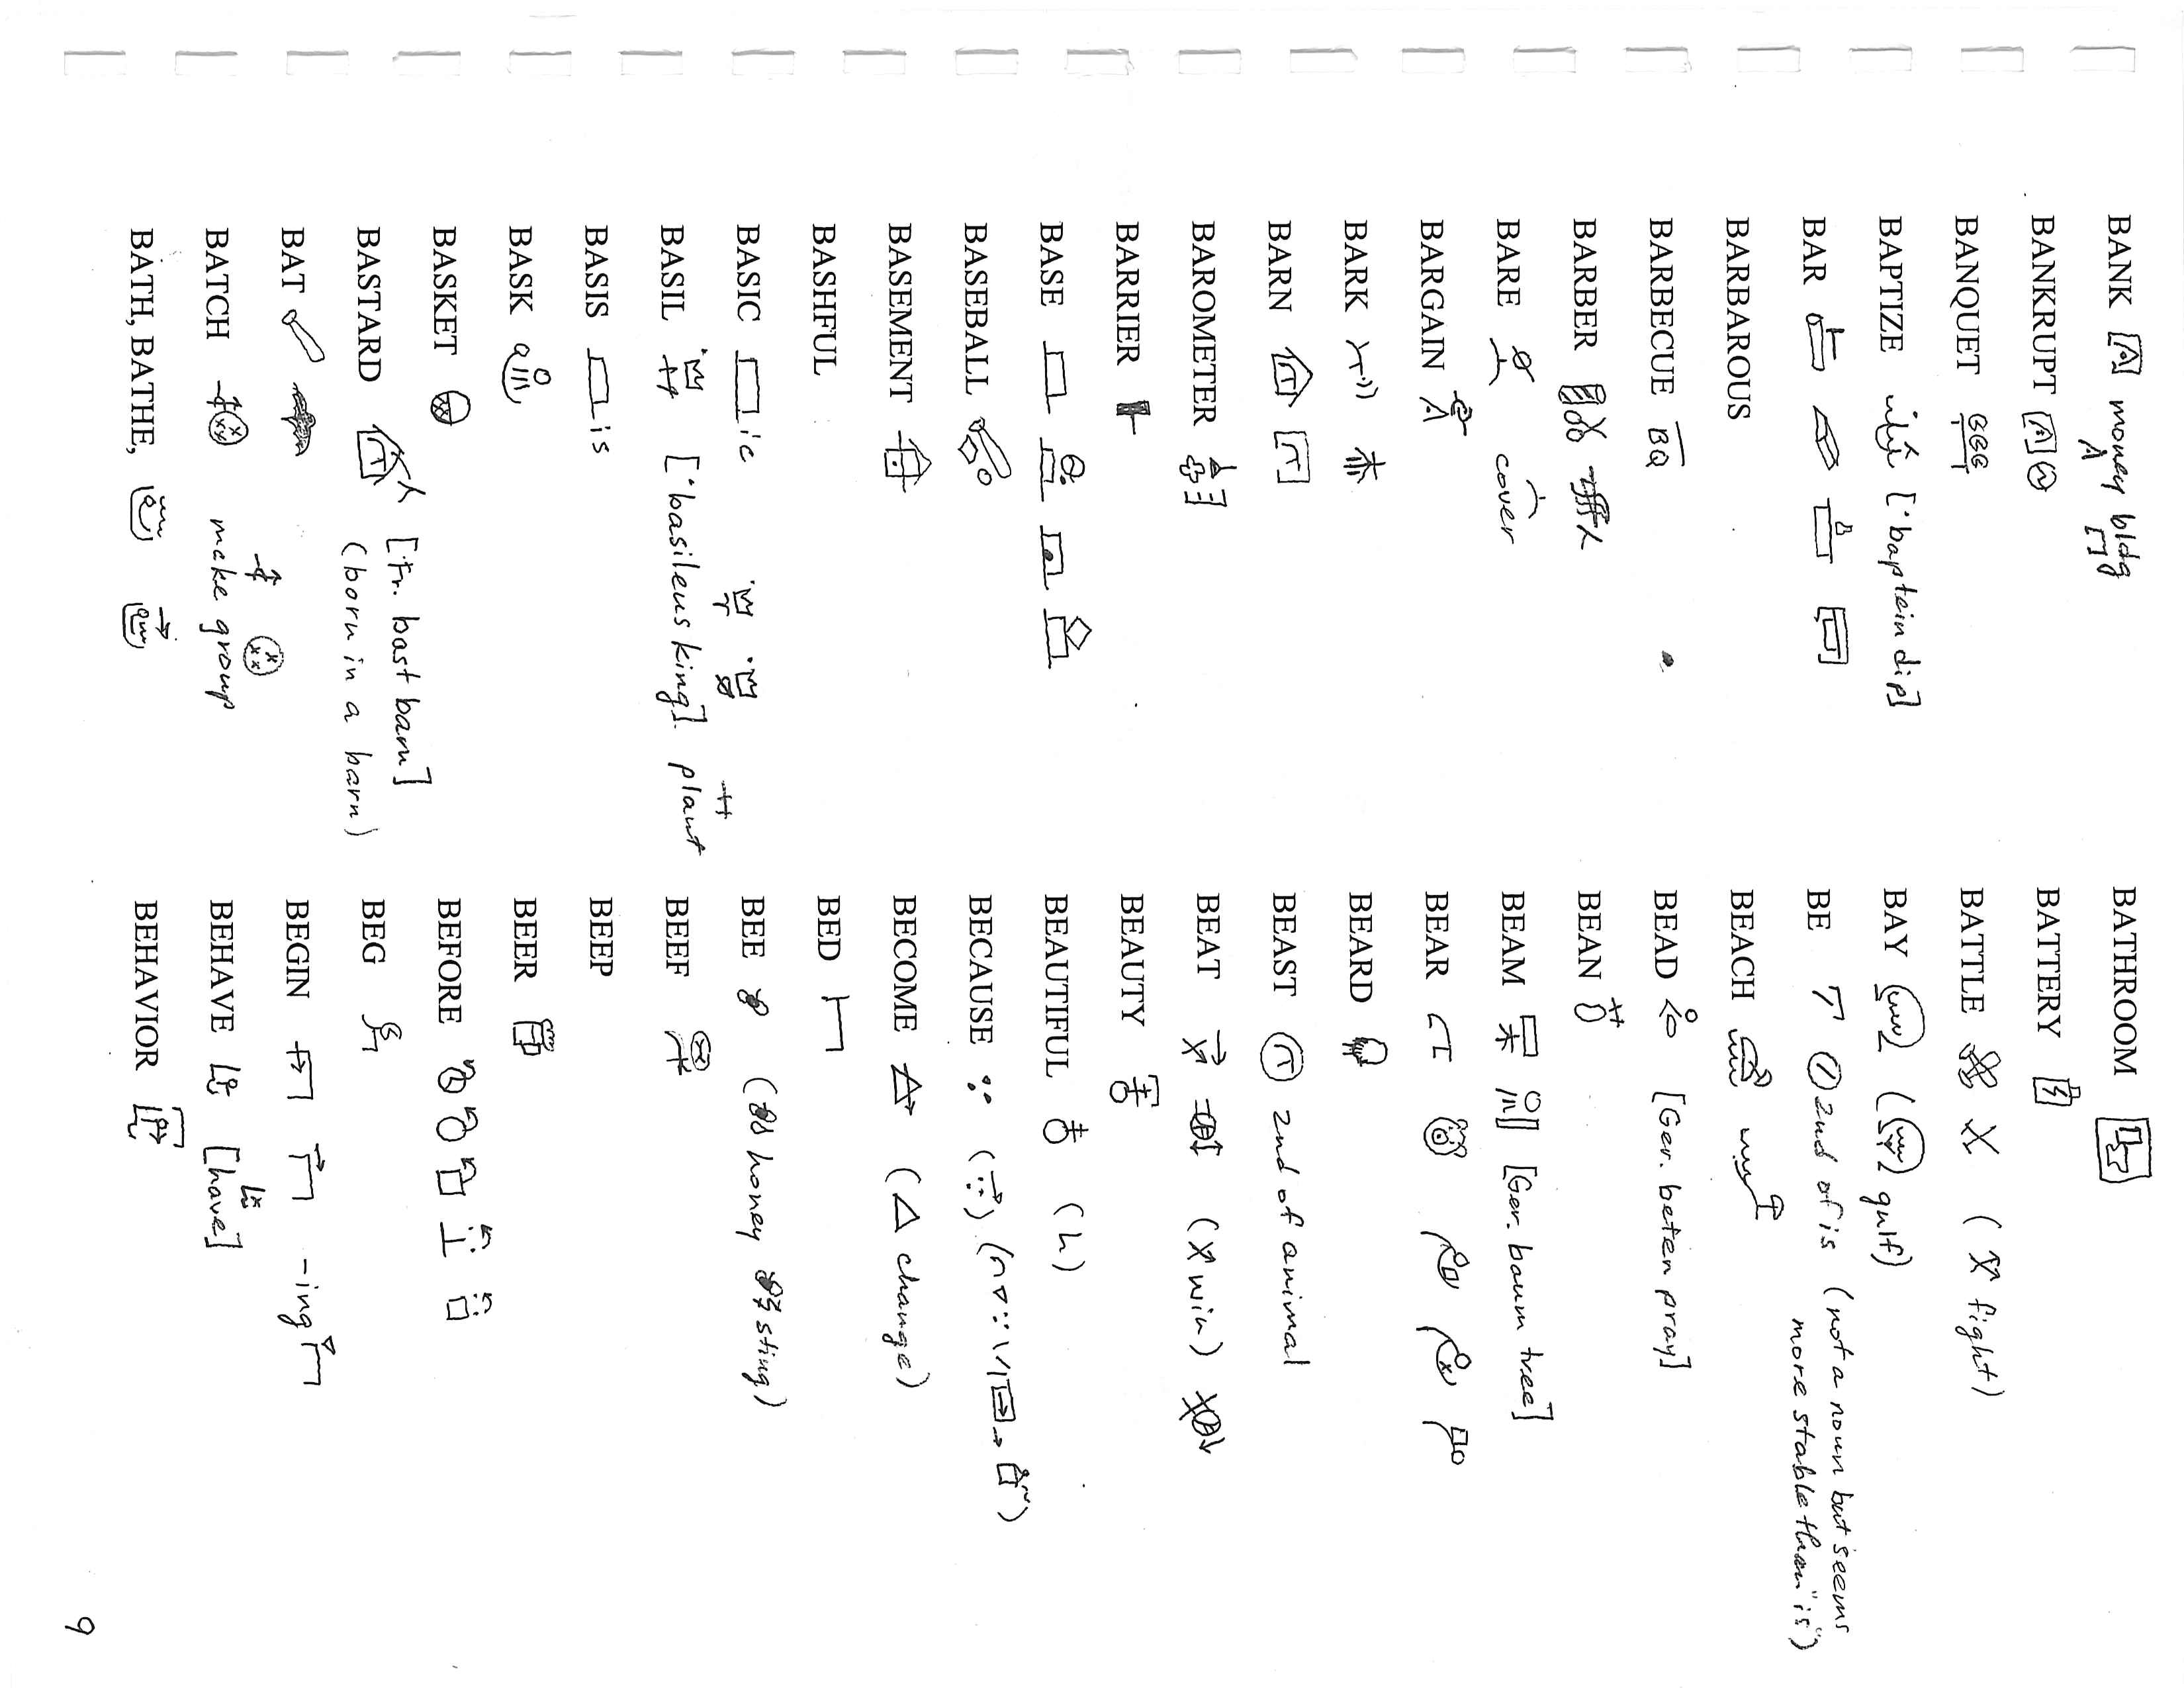 BANK money bldg
BANKRUPT
BANQUET
BAPTIZE [·baptein dip]
BAR
BARBAROUS
BARBECUE BQ
BARBER
BARE cover
BARGAIN
BARK
BARN
BAROMETER
BARRIER
BASE
BASEBALL
BASEMENT
BASHFUL
BASIC ic
BASIL [·basileus king] plant
BASIS is
BASK
BASKET
BASTARD [Fr. bast barn]
(born in a barn)
BAT
BATCH make group
BATH, BATHE,
BATHROOM
BATTERY
BATTLE ( fight)
BAY ( gulf)
BE 2nd of is (not a noun but seems
more stable than "is")
BEACH
BEAD [Ger. beten pray]
BEAN
BEAM [Ger. baum tree]
BEAR
BEARD
BEAST 2nd of animal
BEAT ( win)
BEAUTY
BEAUTIFUL (h)
BECAUSE
BECOME ( change)
BED
BEE ( honey sting)
BEEF
BEEP
BEER
BEFORE
BEG
BEGIN -ing
BEHAVE [have]
BEHAVIOR
9